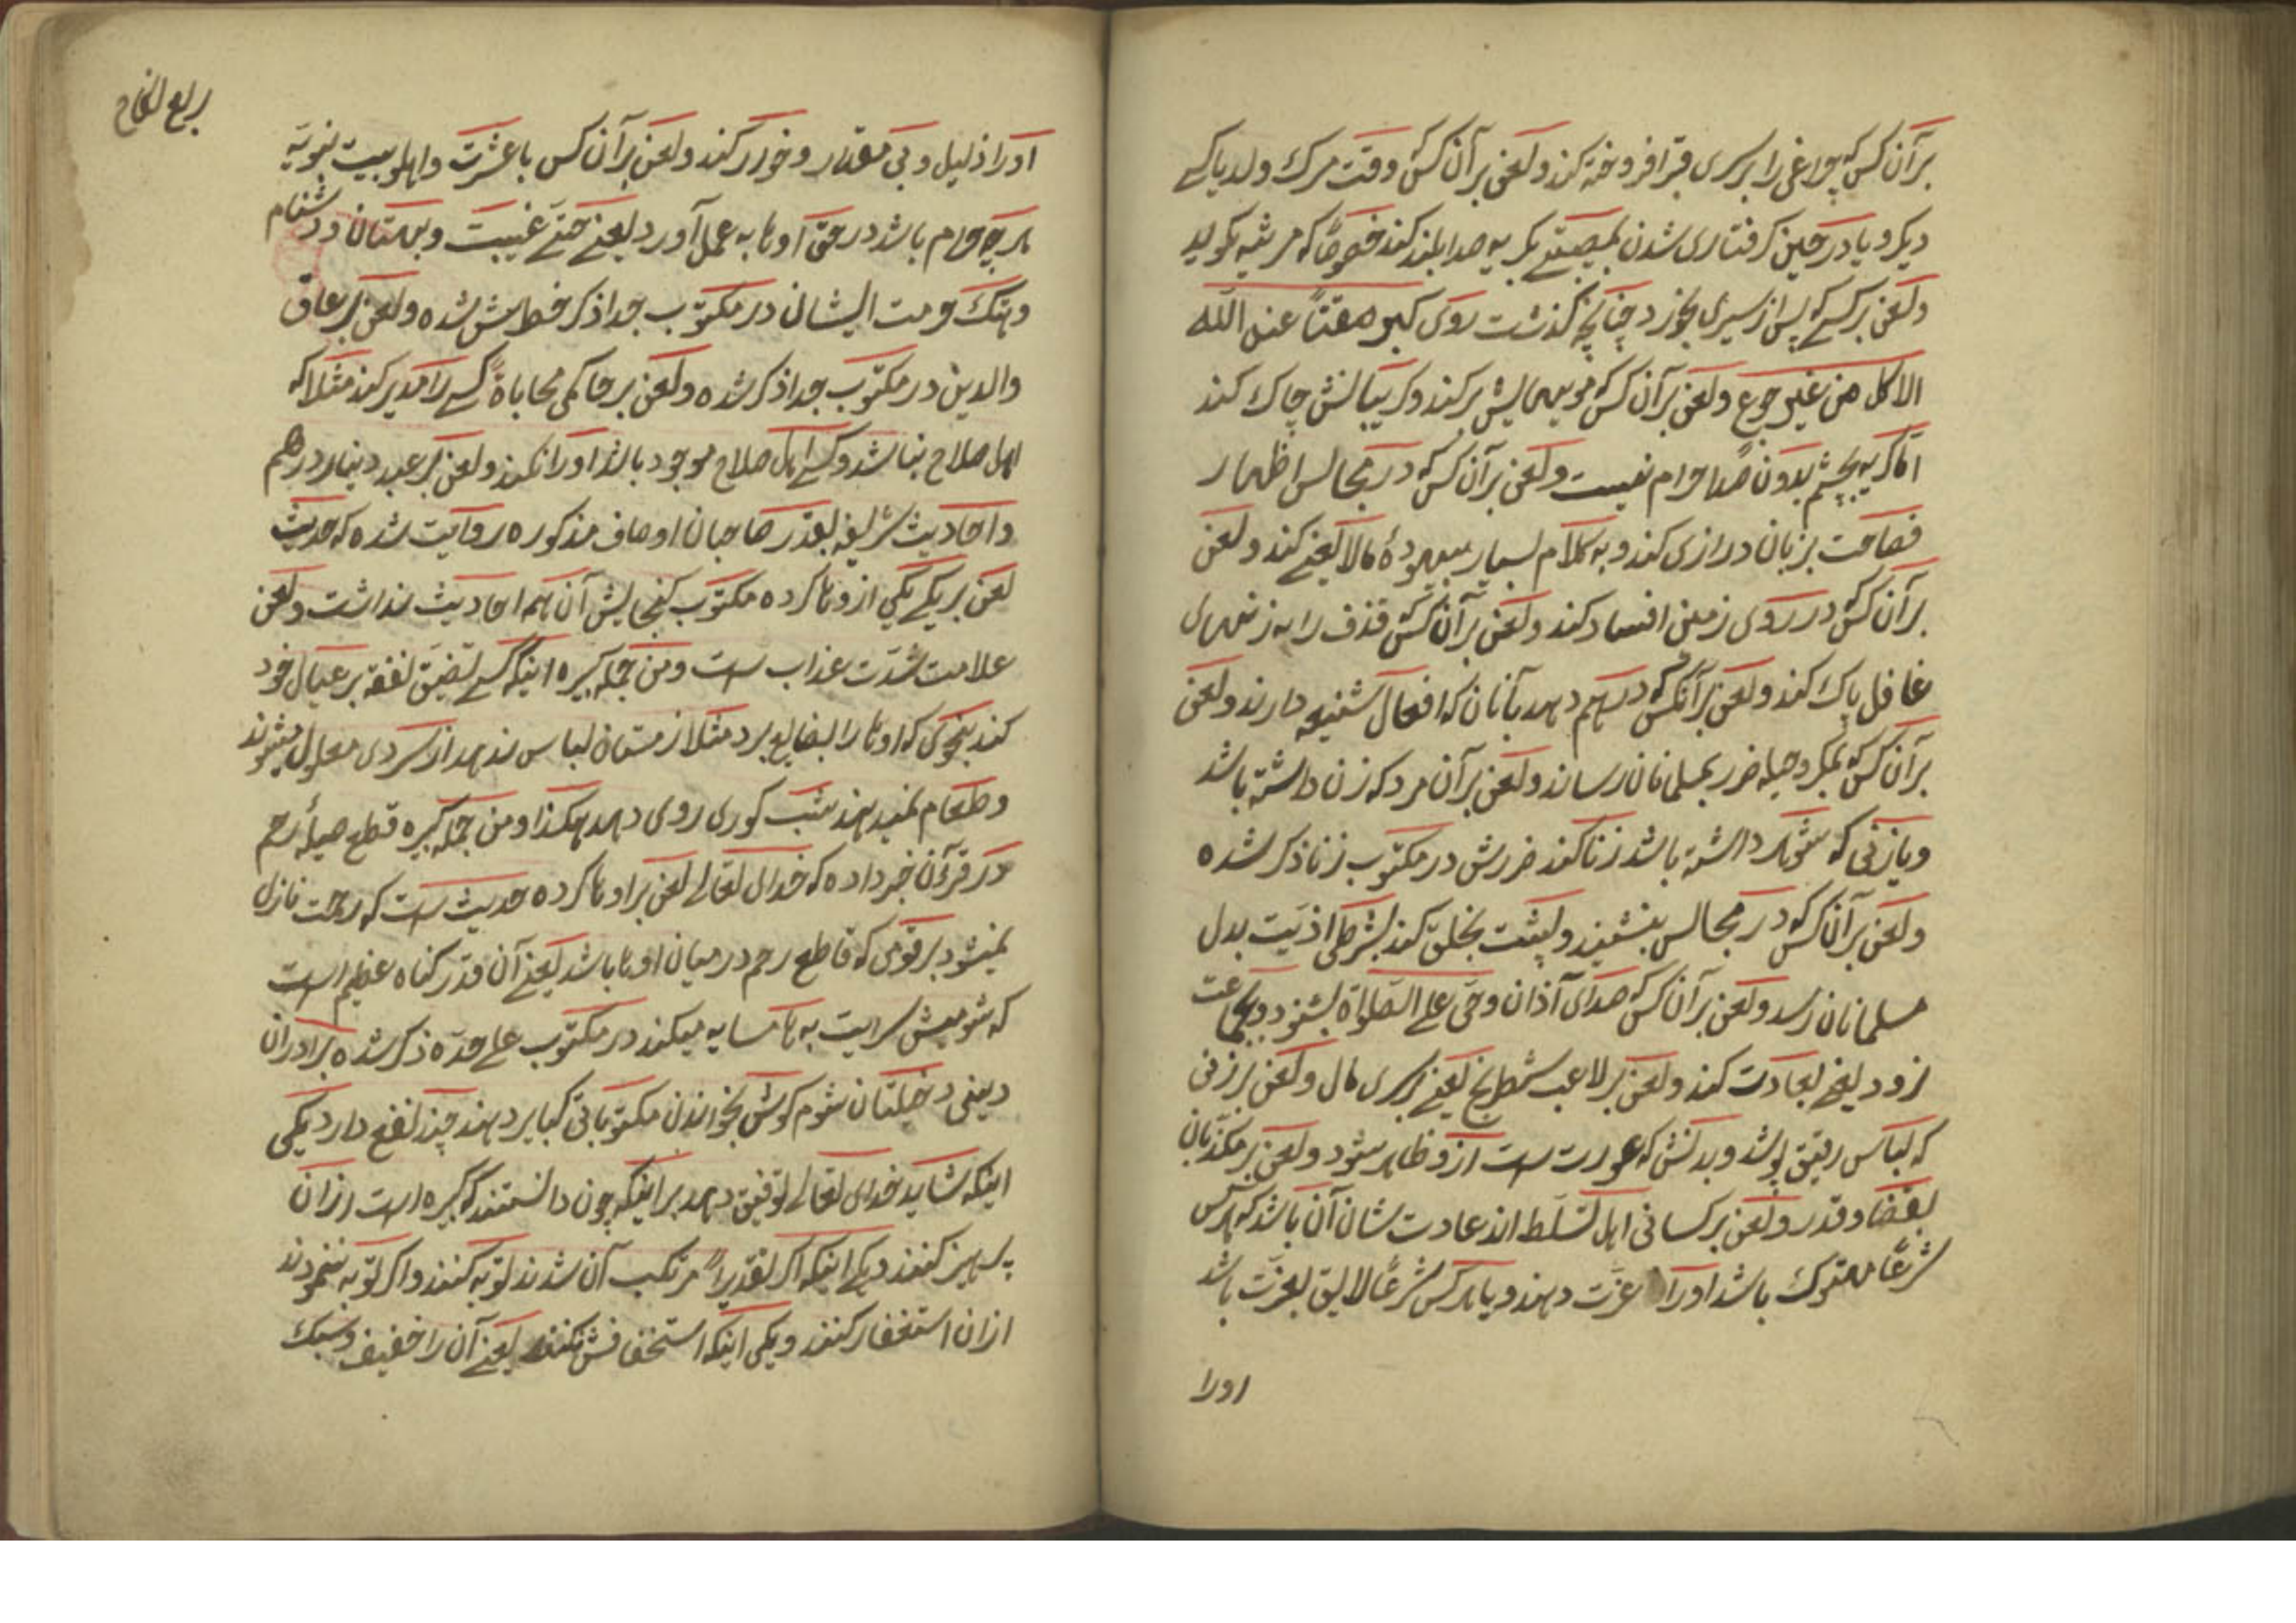 بر آن کس که چراغی را بر سری قبر افروخته کند و لعن بر آن کس که وقت مرک ولد یا کسے
دیکر و یا در حین کرفتاری شدن بمصیبتے بکریه صدا بلند کند خصوصًا که مرثیه کوید
و لعن بر کسے که پس از سیری بخورد چنانچه کذشت روی کبر مقتًا عند الله
الاکل من غیر جوع و لعن بر آن کس که مویهایش بر کند و کریبانش چاک کند
امّا کریه بچشم بدون صدا حرام نیست و لعن بر آن کس که در مجالس اظهار
فصاحت بزبان درازی کند و به کلام بسیار بیهودهٔ مالا یعنے کند و لعن
بر آن کس که در روی زمین افساد کند و لعن بر آن کس که قذف را به زنهای
غافل پاک کند و لعن بر آنکس که درهم دهد بآنان که افعال شنیعه دارند و لعن
بر آن کس که بمکر و حیله ضرر بمسلمانان رساند و لعن بر آن مرد که زن داشته باشد
و یا زنی که شوهر داشته باشد زنا کند ضررش در مکتوب زنا ذکر شده
و لعن بر آن کس که در مجالس بنشیند و پشت بخلق کند بشرطی اذیّت بدل
مسلمانان رسد و لعن بر آن کس که صدای آذان و حیّ علے الصّلوٰة بشنود و بجماعت
نرود یعنے بعادت کند و لعن بر لاعب شطرنج یعنے برسری مال و لعن بر زنی
که لباس رقیق پوشد و بدنش که عورت ست ازو ظاهر شود و لعن بر مکذّبان
بقضا و قدر و لعن بر کسانی اهل تسلّط اند عادت شان آن باشد که هر کس
شرعًا متروک باشد او را عزّت دهند و یا هر کس شرعًا لایق بعزّت باشد
اورا
او را ذلیل و بی مقدار و خور کند و لعن بر آن کس با عشرت و اهلو بیت نبویّه
هر چه حرام باشد در حقّ اوها به عمل آورد یعنے حتّے غیبت و بهتان و دشنام
و هتک حرمت ایشان در مکتوب جدا ذکر خطایش شده و لعن بر عاق
والدین در مکتوب جدا ذکر شده و لعن بر حاکمی محاباةً کسے را مدیر کند مثلا که
اهل صلاح نباشد و کسے اهل صلاح موجود باشد او را نکند و لعن بر عبد دینار و درهم
و احادیث شریفه بقدر صاحبان اوصاف مذکوره روایت شده که حدیث
لعن بر یکے یکی ازوها کرده مکتوب کنجایش آن همه احادیث نداشت و لعن
علامت شدّت عذاب ست و من جمله کبیره اینکه کسے تضیّق نفقه بر عیال خود
کند بنحوی که اوها را بضایع برد مثلا زمستان لباس ندهد از سردی معلول میشوند
و طعام نمیدهند شب کوری روی دهد هکذا و من جمله کبیره قطع صیلهٔ رحم
در قرآن خبر داده که خدای تعالے لعن بر اوها کرده حدیث ست که رحمت نازل
نمیشود بر قومی که قاطع رحم در میان اوها باشد یعنے آن قدر کناه عظیم است
که شومیش سرایت به هامسایه میکند در مکتوب علے حدّه ذکر شده برادران
دینی دخیلتان شوم کوش بخواندن مکتوباتی کبایر دهند چیز نفع دارد یکی
اینکه شاید خدای تعالے توفیق دهد بر اینکه چون دانستند که کبیره است ازان
پرهیز کنند دیکے اینکه اکر تقدیرًا مرتکب آن شدند توبه کنند و اکر توبه ننمودند
ازان استغفار کنند و یکی اینکه استخفافش نکنند یعنے آن را خفیف و سبک